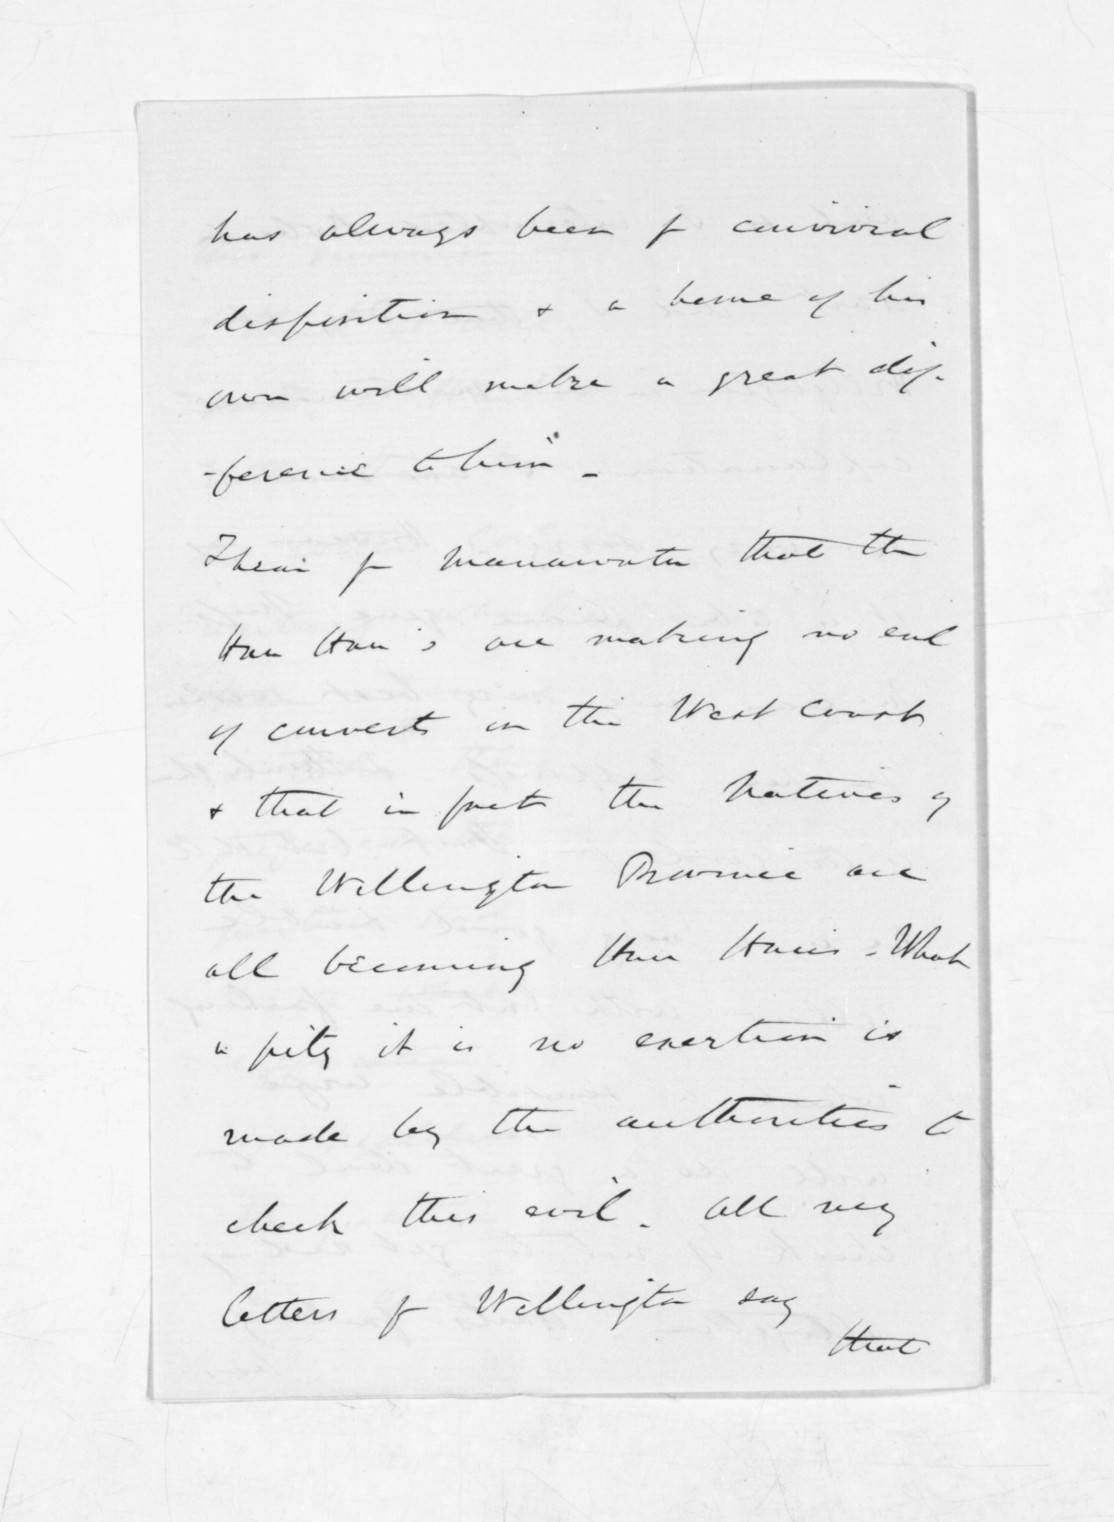 has always been f convivial
disposition & a home of his
own will make a great dif-
-ference to him" -
I hear f Manawatu that the
Hau Hau's are making no end
of converts on the West Coast
& that in fact the Natives of
the Wellington Province are
all becoming Hau Haus - What
a pity it is no exertion is
made by the authorities to
check this evil. All my
letters f Wellington say
that